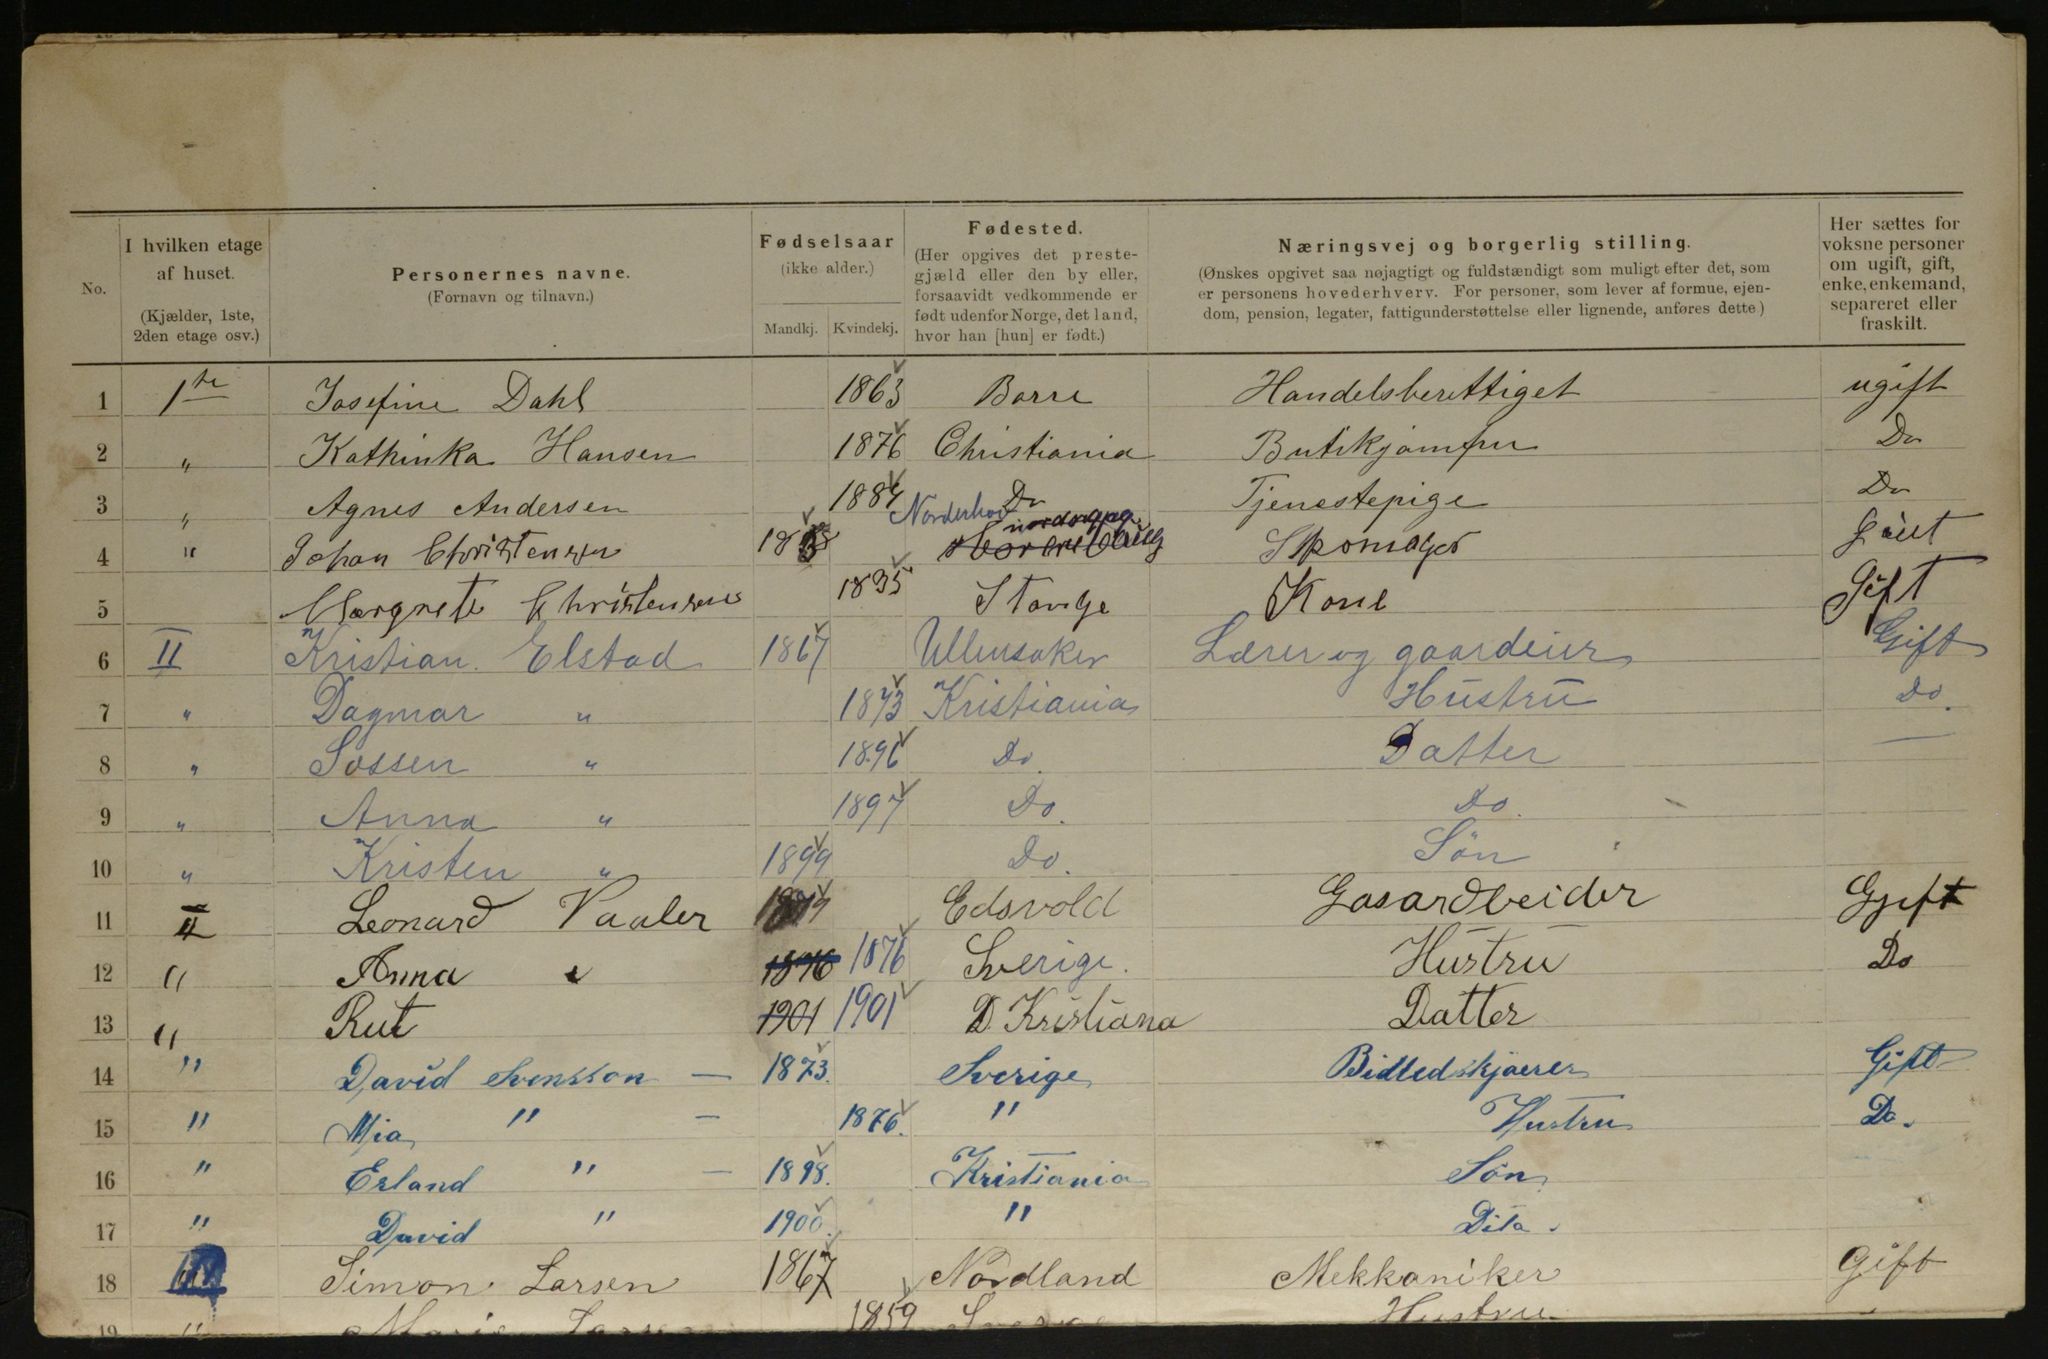 No.
I hvilken etage af huset.
(Kjælder, 1ste, 2den etage osv.)
Personernes navne.
(Fornavn og tilnavn.)
Fødselsaar
(ikke alder.)
Mandkj. Kvindekj.
Fødested.
(Her opgives det prestegjæld eller den by eller, forsaavidt vedkommende er født udenfor Norge, det land, hvor han [hun] er født.)
Næringsvej og borgerlig stilling.
(Ønskes opgivet saa nøjagtigt og fuldstændigt som muligt efter det, som er personens hovederhverv. For personer, som lever af formue, ejendom, pension, legater, fattigunderstøttelse eller lignende, anføres dette)
Her sættes for voksne personer om ugift, gift, enke, enkemand, separeret eller fraskilt.
1 1ste Josefine Dahl 1863 Borre Handelsberettiget ugift
2 " Kathinka Hansen 1876 Christiania Butikjomfru Do
3 " Agnes Andersen 1884 Do Tjenestepige Do
4 " Johan Christensen Norderhov Skomager
5 Margrete Christensen 1835 Stange Kone Gift
6 II Kristian Elstad 1867 Ullensaker Lærer og gaardeier Gift
7 " Dagmar " 1873 Kristiania Hustru Do.
8 " Sossen " 1896 Do. Datter —
9 " Anna " 1897 Do. Do.
10 " Kristen " 1899 Do. Søn
11 II Leonard Vaaler Edsvold Gasardbeider Gjift
12 " Anna " 1876 1876 Sverige. Hustru Do
13 " Rut 1901 1901 D. Kristiana Datter
14 " David Svensson — 1873. Sverige Bidledskjærer Gift
15 " Mia " — 1876. " Hustru Do.
16 " Erland " — 1898. Kristiania Søn
17 " David " 1900. " Dito.
18 Simon Larsen 1867 Nordland Mekkaniker Gift
19 " 1859 Hustru